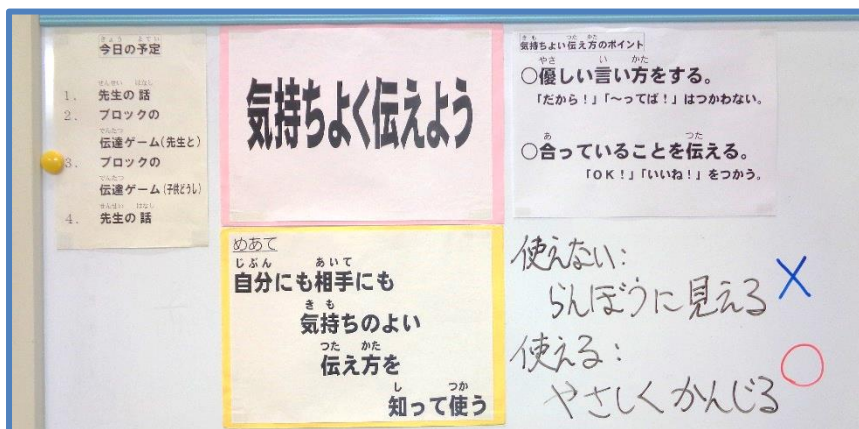 今日の予定
1. 先生の話
2. ブロックの
伝達ゲーム(先生と)
3. ブロックの
伝達ゲーム(子供どうし)
4. 先生の話
気持ちよく伝えよう
めあて
自分にも相手にも
気持ちのよい
伝え方を
知って使う
気持ちよい伝え方のポイント
○優しい言い方をする。
「だから!」「~ってば!」はつかわない。
○合っていることを伝える。
「OK!」「いいね!」をつかう。
使えない:
らんぼうに見える ×
使える:
やさしくかんじる ○